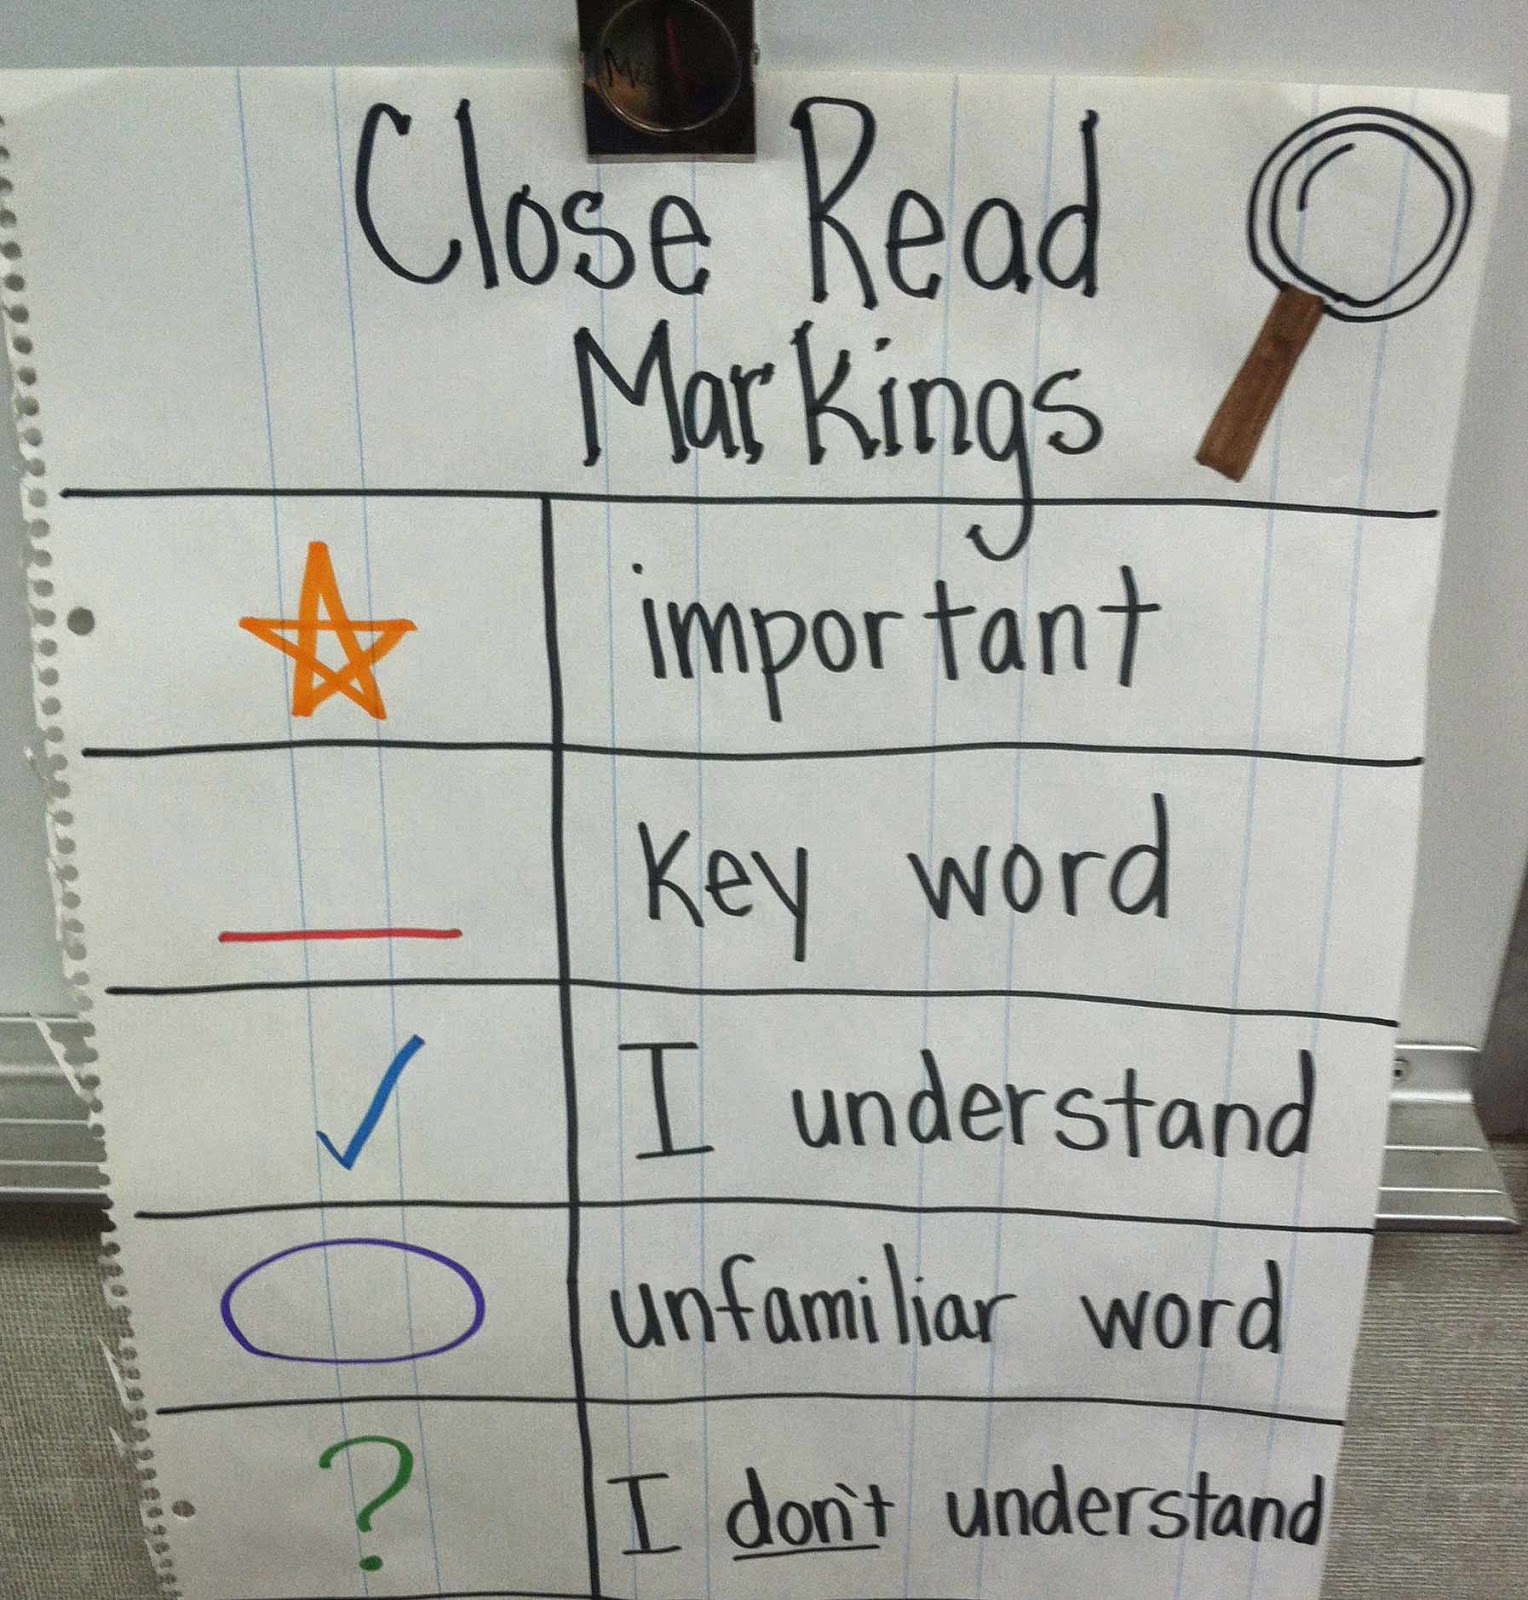 Close Read
Markings
important
Key word
I understand
unfamiliar word
? I don't understand